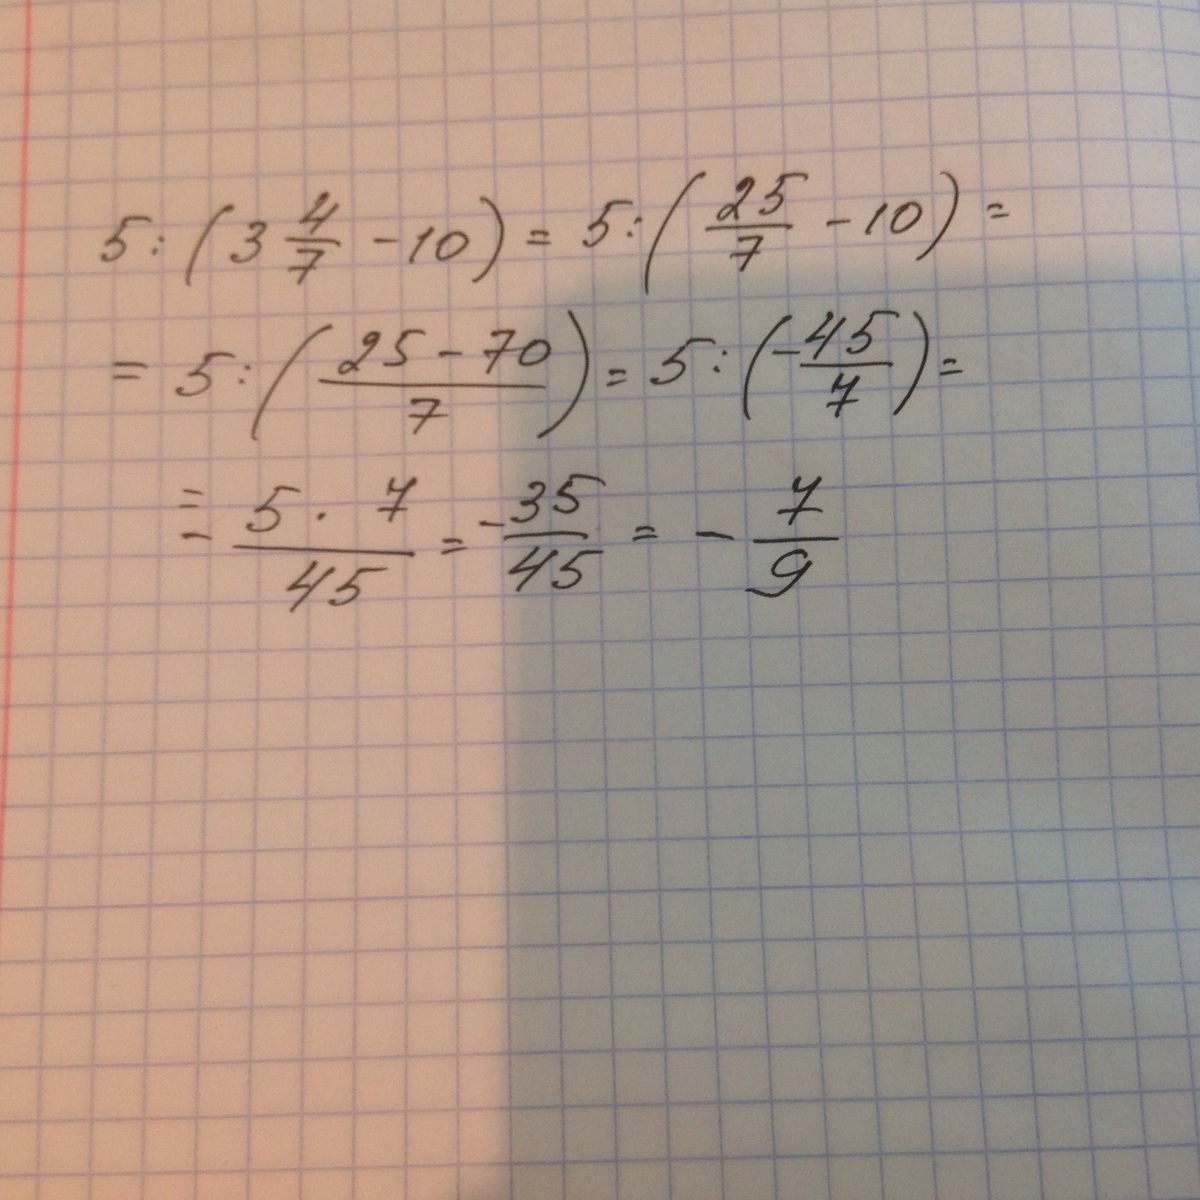 5 : (3 4/7 - 10) = 5 : (25/7 - 10) =
= 5 : ((25 - 70)/7) = 5 : (-45/7) =
= - (5 · 7)/45 = - 35/45 = - 7/9